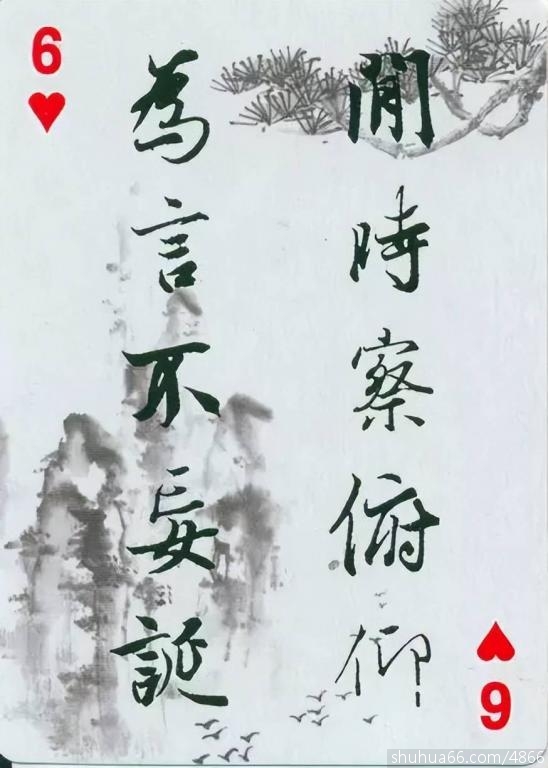 6
閒時察俯仰
為言不妄誕
6
shuhua66.com/4866